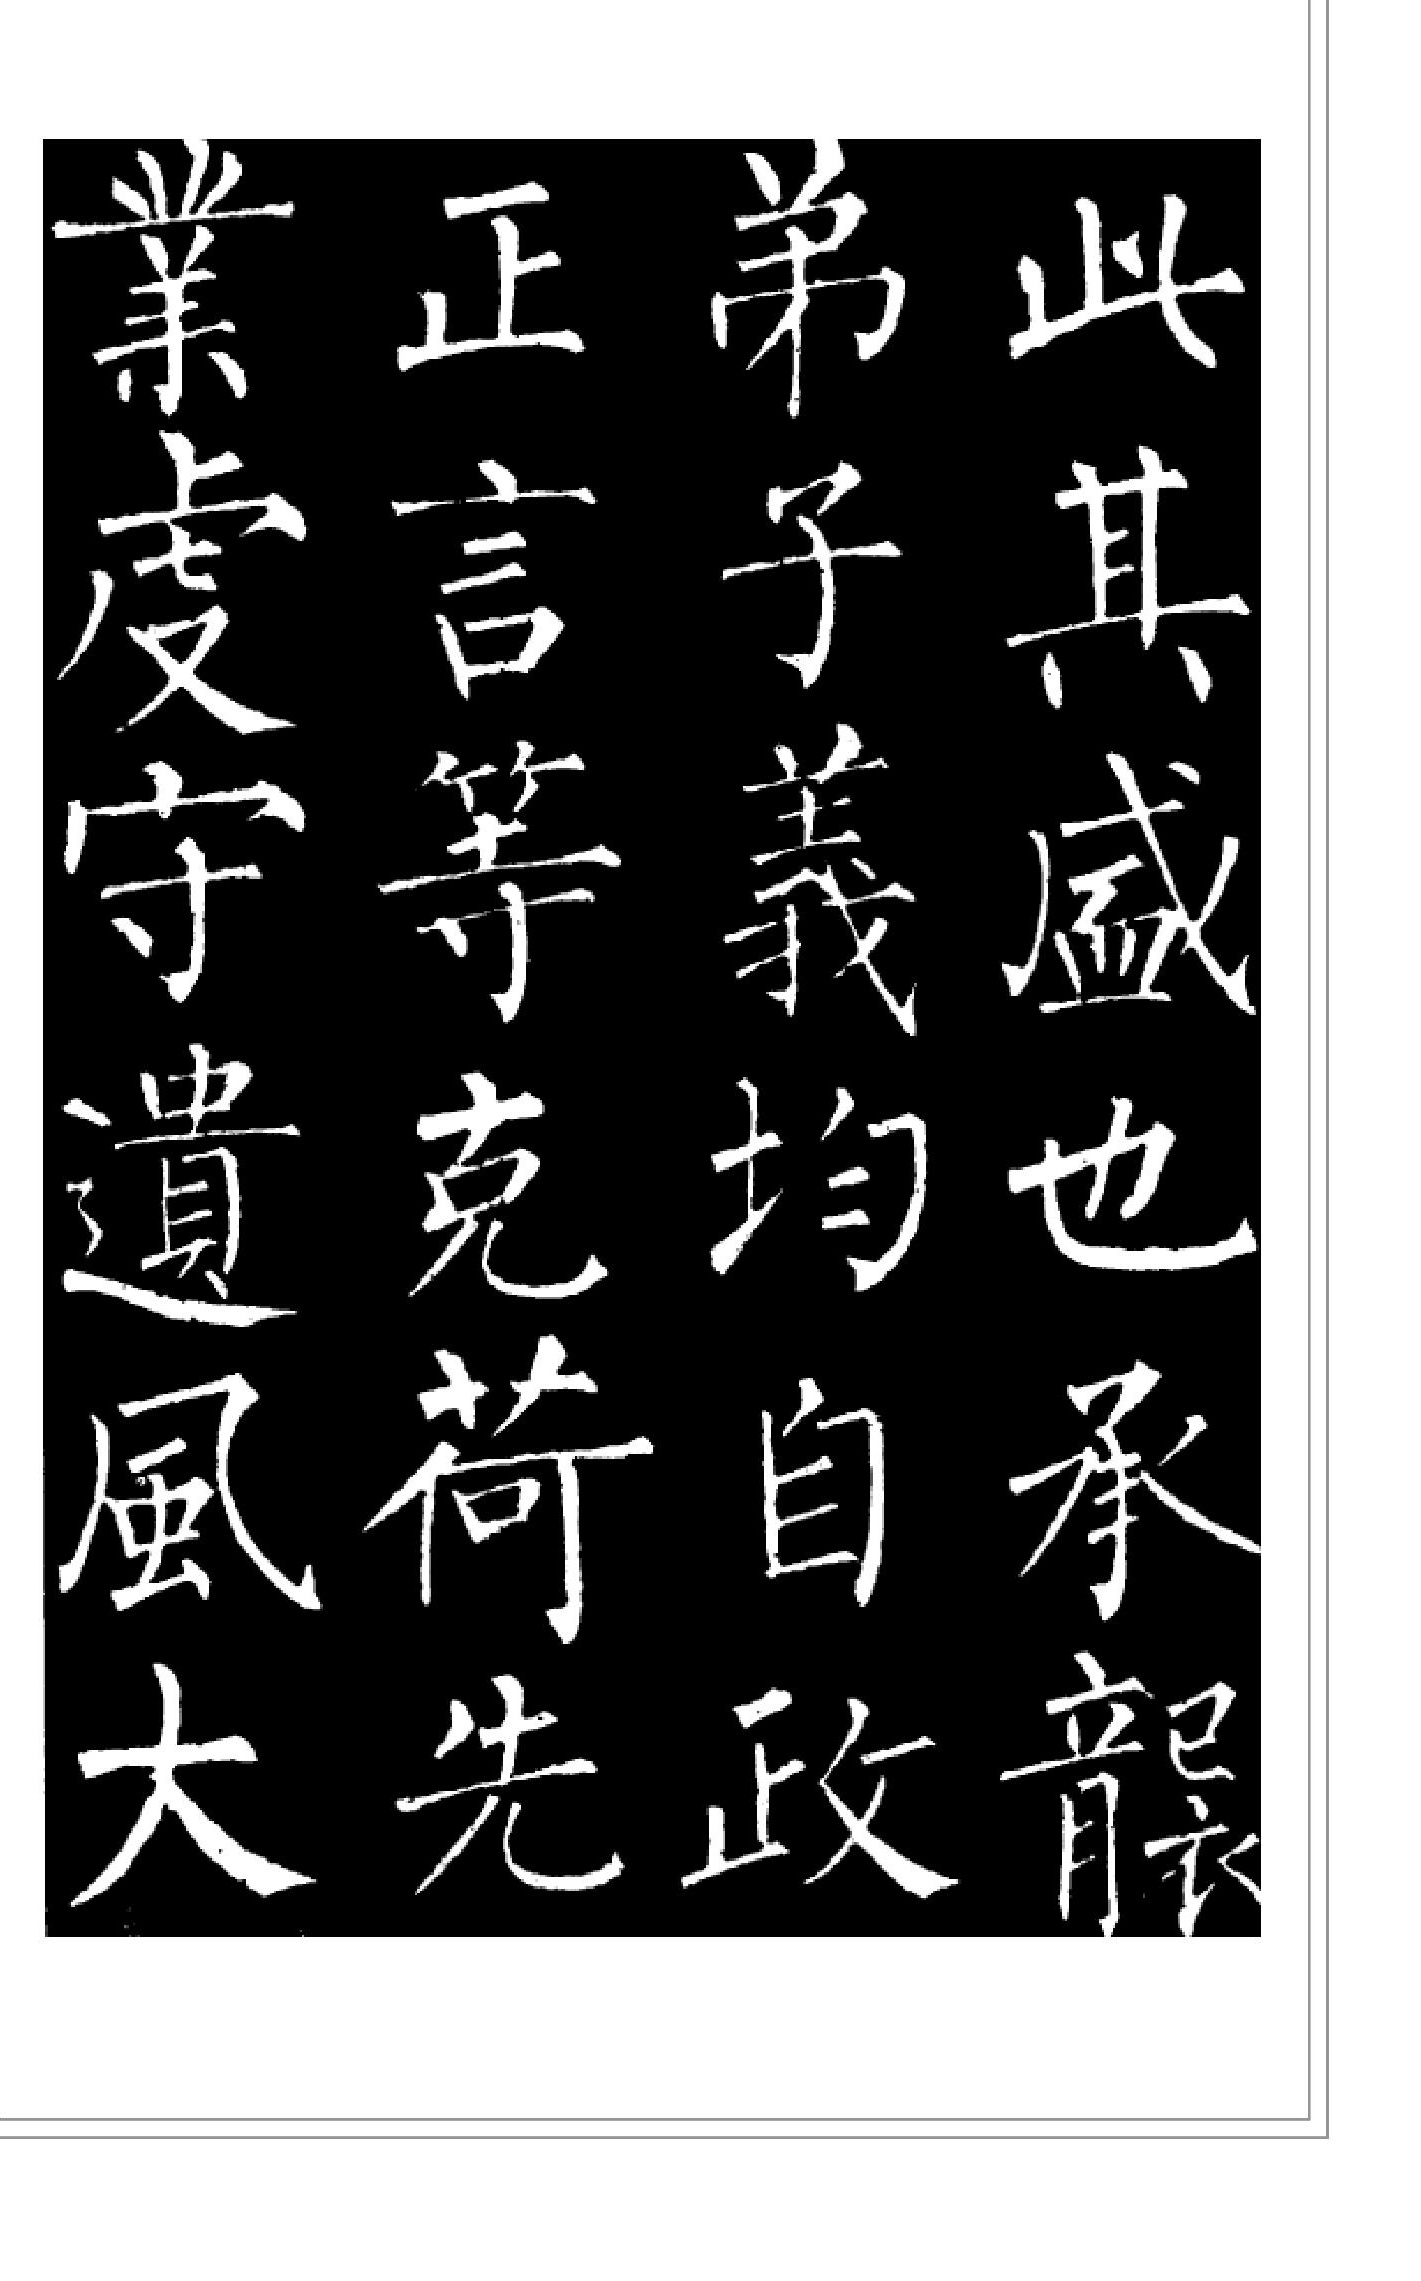 此其盛也承襲
弟子義均自政
正言等克荷先
業虔守遺風大